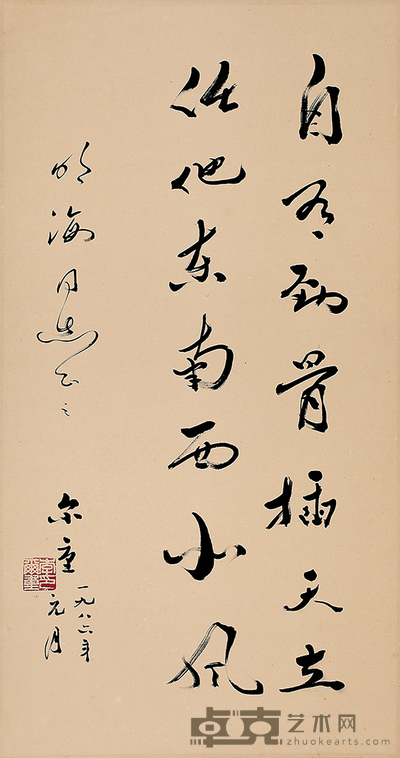 自有劲骨插天立
任他东南西北风
明海同志正之
尔重
一九八六年
元月
卓克艺术网
zhuokearts.com